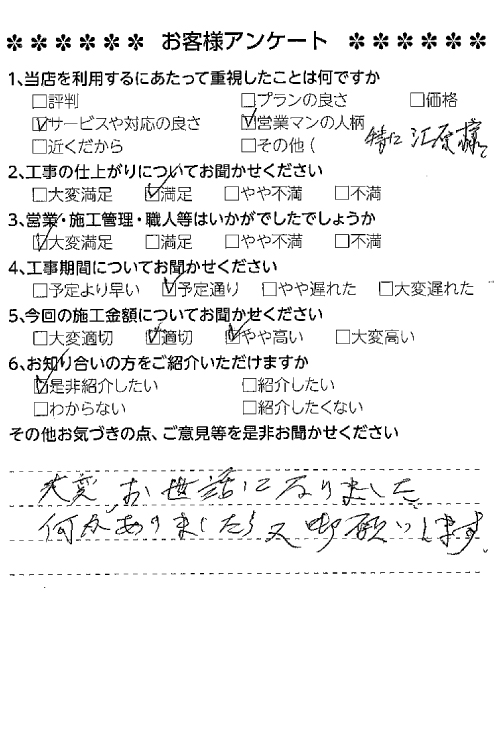 ✽✽✽✽✽✽ お客様アンケート ✽✽✽✽✽✽
1、当店を利用するにあたって重視したことは何ですか
□評判 □プランの良さ □価格
☑サービスや対応の良さ ☑営業マンの人柄
□近くだから □その他( 特に 江原様
2、工事の仕上がりについてお聞かせください
□大変満足 ☑満足 □やや不満 □不満
3、営業・施工管理・職人等はいかがでしたでしょうか
☑大変満足 □満足 □やや不満 □不満
4、工事期間についてお聞かせください
□予定より早い ☑予定通り □やや遅れた □大変遅れた
5、今回の施工金額についてお聞かせください
□大変適切 ☑適切 ☑やや高い □大変高い
6、お知り合いの方をご紹介いただけますか
☑是非紹介したい □紹介したい
□わからない □紹介したくない
その他お気づきの点、ご意見等を是非お聞かせください
大変お世話になりました
何かありましたら又御願いします。